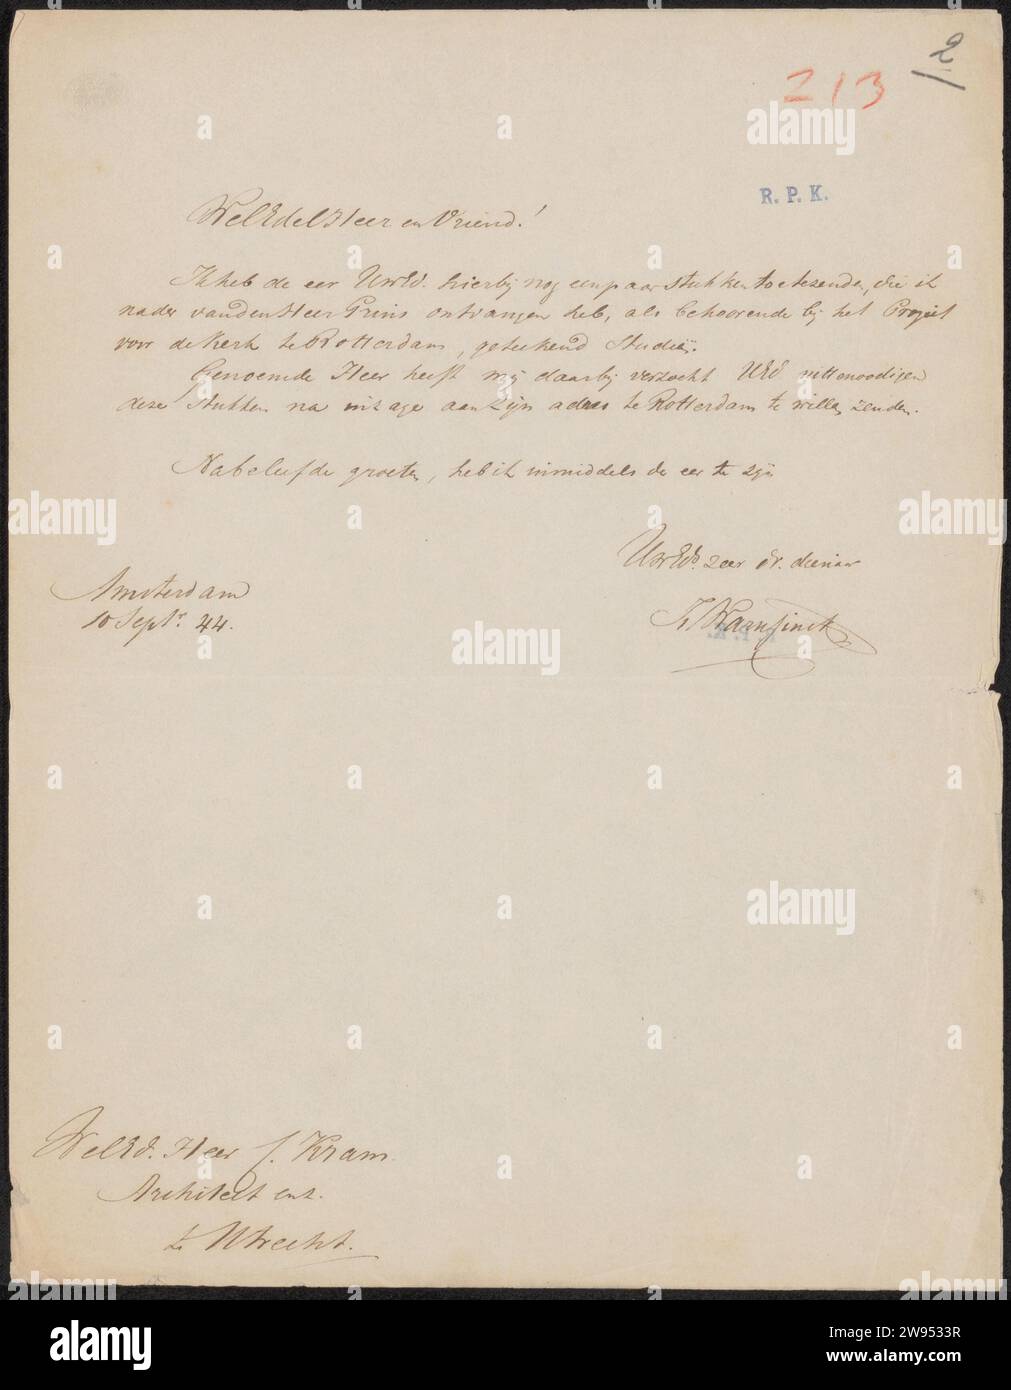 2
213
R. P. K.
WelEdel Heer en Vriend!
Ik heb de eer UwEd. hierbij nog een paar stukken toetezenden, die ik
nader van den Heer Prins ontvangen heb, als behoorende bij het Project
voor de Kerk te Rotterdam, geteekend Studeïj.
Genoemde Heer heeft mij daarbij verzocht UEd uittenoodigen
deze stukken na inzage aan zijn adres te Rotterdam te willen zenden.
Na beleefde groeten, heb ik inmiddels de eer te zijn
UwEds. zeer dv. dienaar
Warnsinck
Amsterdam
10 Septr. 44.
WelEd. Heer J. Kram
Architect enz.
te Utrecht.
alamy
Image ID: 2W9533R
www.alamy.com